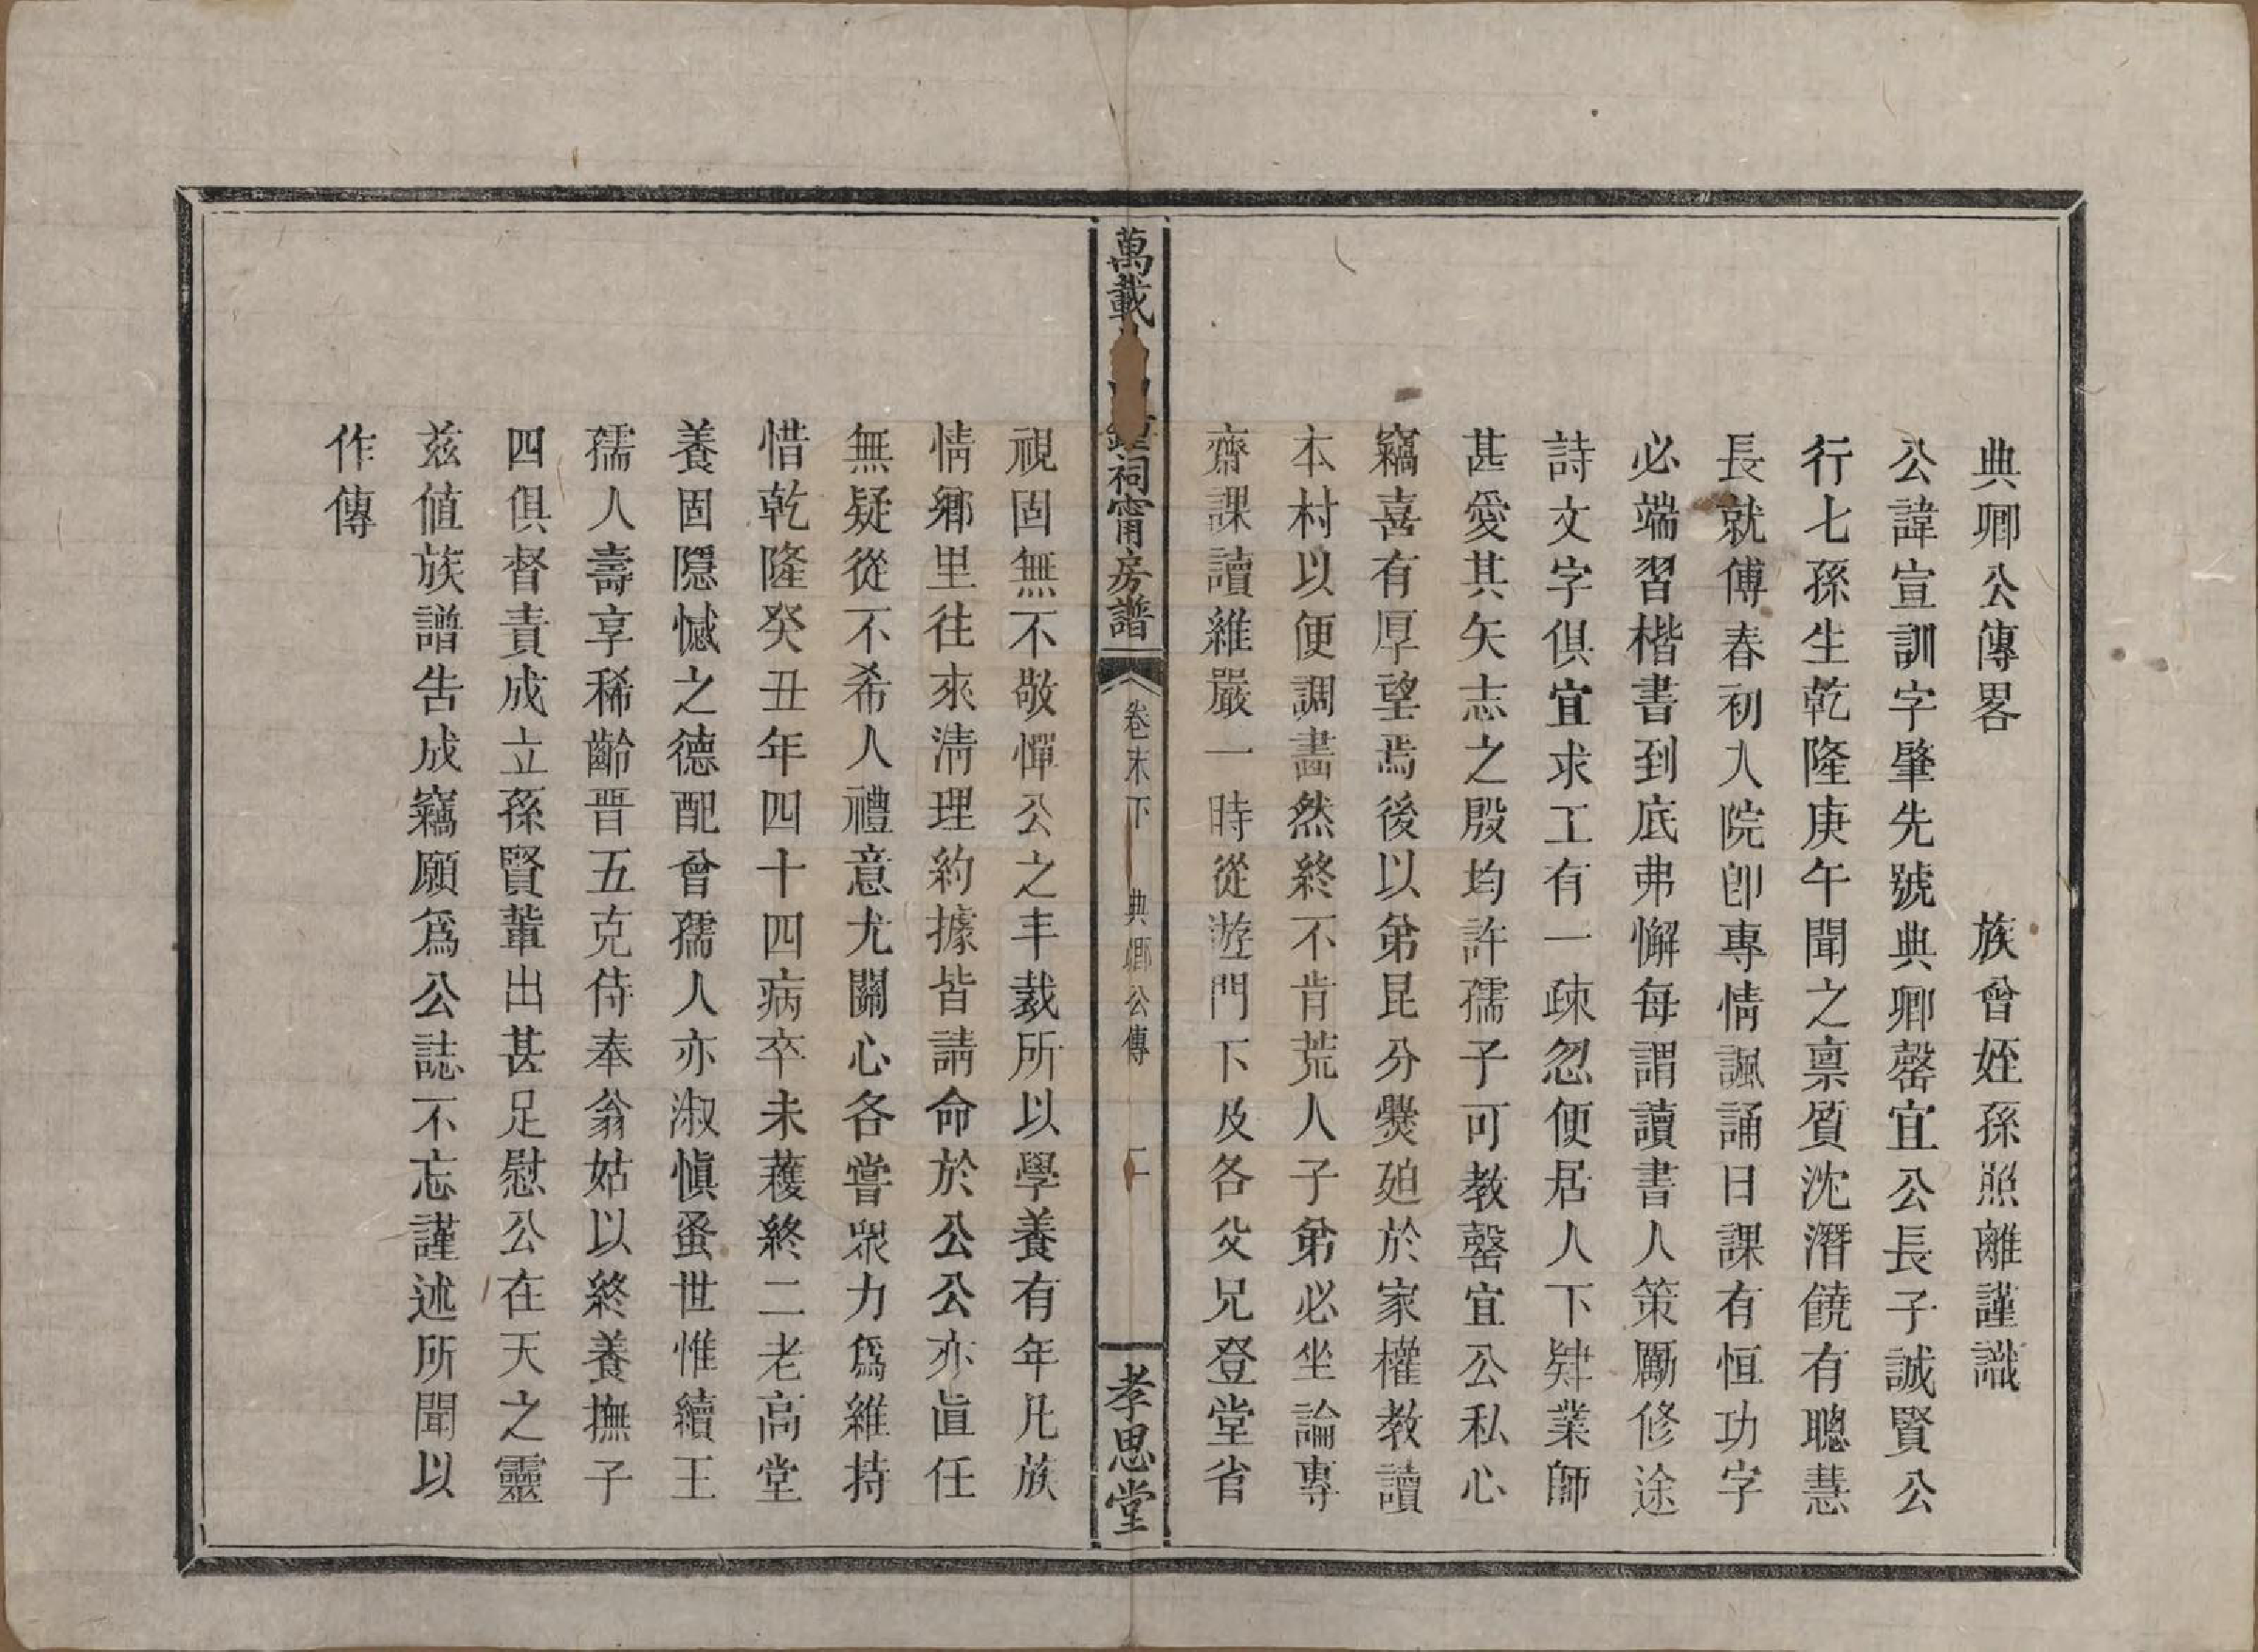 典卿公傳畧　族曾姪孫照離謹識
公諱宣訓字肇先號典卿罄宜公長子誠賢公
行七孫生乾隆庚午聞之禀質沈潛饒有聰慧
長就傅春初入院卽專情諷誦日課有恒功字
必端習楷書到底弗懈每謂讀書人策勵修途
詩文字俱宜求工有一疎忽便居人下肄業師
甚愛其矢志之殷均許孺子可教罄宜公私心
竊喜有厚望焉後以弟昆分爨廹於家權教讀
本村以便調畵然終不肯荒人子弟必坐論專
齋課讀維嚴一時從遊門下及各父兄登堂省
萬載山鍾祠甯房譜　卷末下　典卿公傳　二　孝思堂
視固無不敬憚公之丰裁所以學養有年凡族
情鄉里往來清理約據皆請命於公公亦直任
無疑從不希人禮意尤關心各嘗衆力爲維持
惜乾隆癸丑年四十四病卒未蔓終二老高堂
養固隱憾之德配曾孺人亦淑愼蚤世惟續王
孺人壽享稀齡晋五克侍奉翁姑以終養撫子
四俱督責成立孫賢輩出甚足慰公在天之靈
茲值族譜告成竊願爲公誌不忘謹述所聞以
作傳